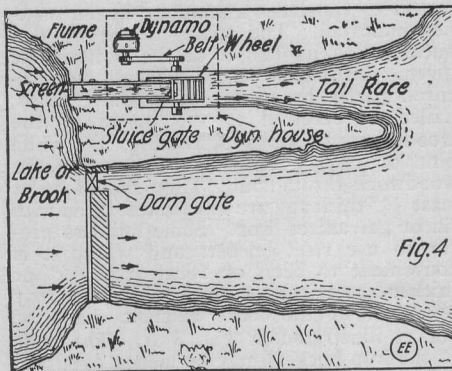 Dynamo
Flume
Belt
Wheel
Screen
Tail Race
Sluice gate
Dyn house
Lake or
Brook
Dam gate
Fig.4
EE